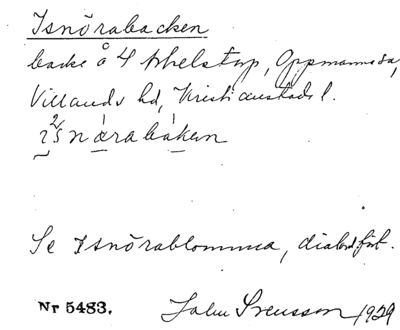 Isnörabacken
backe å 4 Arkelstorp, Oppmanna sn,
Villands hd, Kristianstads l.
Se Isnörablomma, dialektförf.
Nr 5483. John Svensson 1929